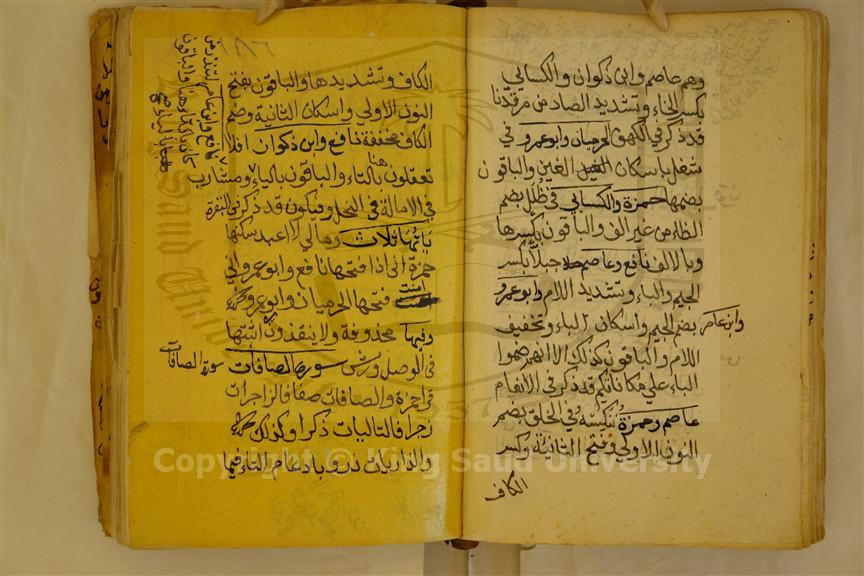 وهم عاصم وابن ذكوان والكسائي
بكسر الخاء وتشديد الصاد من مرقدنا
قد ذكر في الكهف الحرميان وابو عمرو في
شغل باسكان الغين والباقون
بضمها حمزة والكسائي في ظلل بضم
الظاء من غير الف والباقون بكسرها
وبالالف نافع وعاصم جبلا بكسر
الجيم والباء وتشديد اللام وابو عمرو
وابن عامر بضم الجيم واسكان الباء وتخفيف
اللام والباقون كذلك الا انهم ضموا
الباء علي مكاناتكم قد ذكر في الانعام
عاصم وحمزة ننكسه في الخلق بضم
النون الاولي وفتح الثانية وكسر
الكاف
١٨٦
الكاف وتشديدها والباقون بفتح
النون الاولي واسكان الثانية وضم
الكاف مخففة نافع وابن ذكوان افلا
تعقلون هنا بالتاء والباقون بالياء ومشارب
في الامالة في النحل وفيكون قد ذكر في البقرة
ياءتها ثلاث وما لي لا اعبد سكنها
حمزة اني اذا فتحها نافع وابو عمرو اني
امنت فتحها الحرميان وابو عمرو
وفيها محذوفة ولا ينقذون اثبتها
في الوصل ورش سورة الصافات
سورة الصافات
قرا حمزة والصافات صفا فالزاجرات
زجرا فالتاليات ذكرا وكذلك
والذاريات ذروا بادغام التاء فيما
نافع وابن عامر لتنذر من
كان بالتاء هنا والباقون
بالياء
Copyright © King Saud University